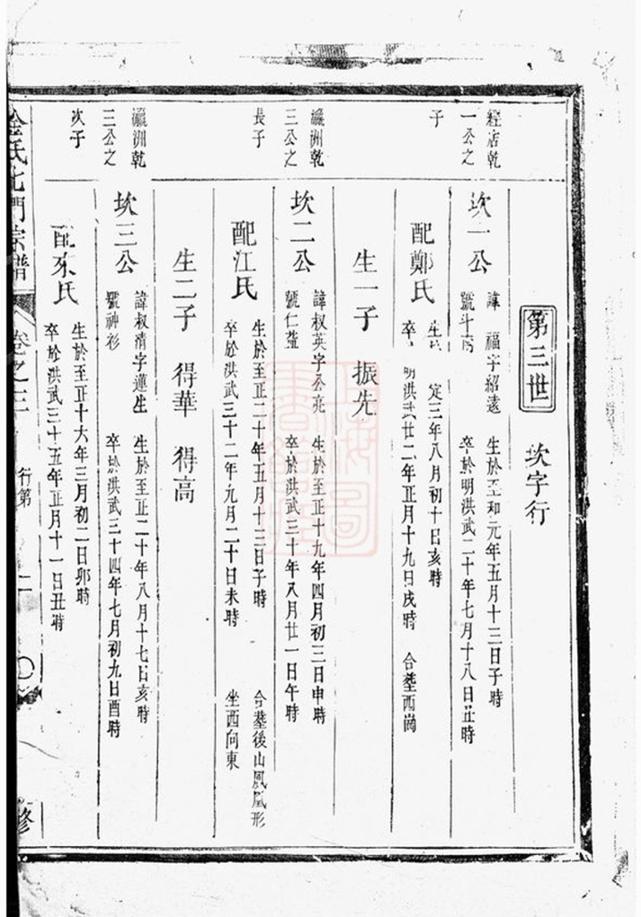 第三世
坎字行
經店乾
一公之
子
坎一公
諱 福字紹遠
號
生於至和元年五月十三日子時
卒於明洪武二十年七月十八日丑時
配鄭氏
生 定三年八月初十日亥時
卒 明洪武廿二年正月十九日戌時
合葬西崗
生一子 振先
瀛洲乾
三公之
長子
坎二公
諱叔英字公亮
號仁菫
生於至正十九年四月初三日申時
卒於洪武三十年八月廿一日午時
配江氏
生於至正二十年五月十三日子時
卒於洪武三十二年九月二十日未時
合葬後山鳳凰形
坐西向東
生二子 得華 得高
瀛洲乾
三公之
次子
坎三公
諱叔清字蓮生
號神衫
生於至正二十年八月十七日亥時
卒於洪武三十四年七月初九日酉時
配 氏
生於至正十六年三月初二日卯時
卒於洪武三十五年正月十一日丑時
氏北門宗譜
卷之三
行第
二
修
上海圖書館藏